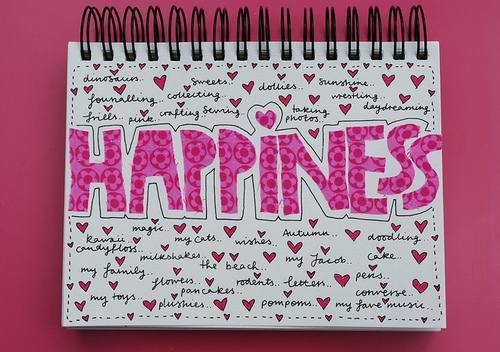 dinosaurs.. sweets.. dollies.. sunshine..
journalling.. collecting.. wrestling..
frills.. pink.. crafting.. sewing.. taking photos.. daydreaming..
HAPPiNESS
magic.. Autumn..
kawaii.. my cats.. wishes.. doodling..
candyfloss.. milkshakes.. the beach.. my Jacob.. cake..
my family.. flowers.. rodents.. letters.. pens..
pancakes.. converse..
my toys.. plushies.. pompoms.. my fave music...